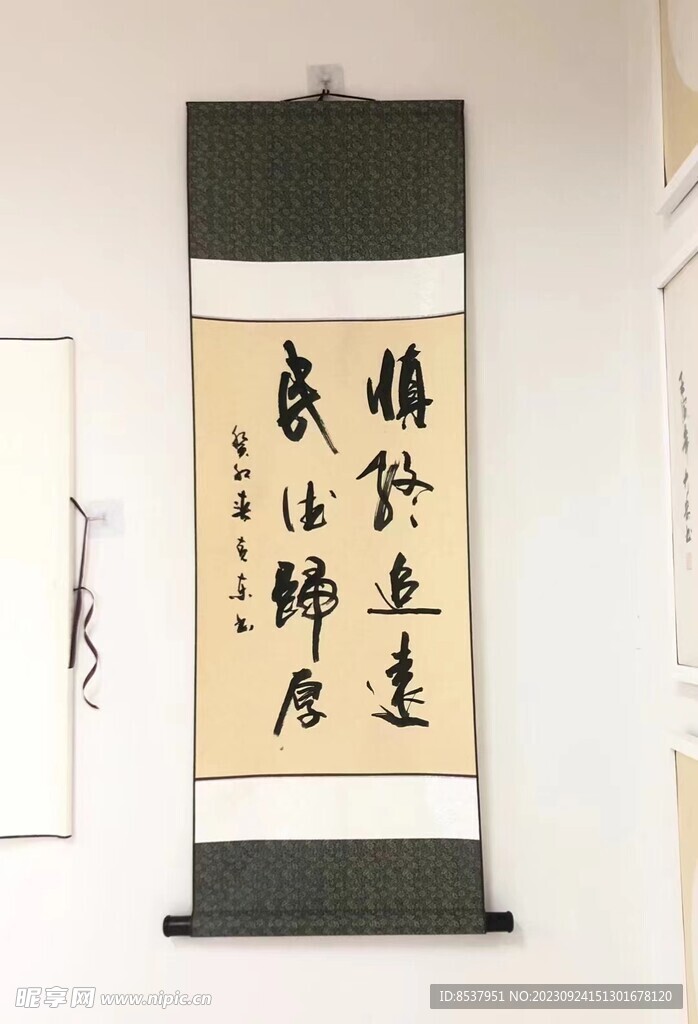 慎終追遠
民德歸厚
癸卯春
昵享网 www.nipic.cn
ID:8537951 NO:20230924151301678120